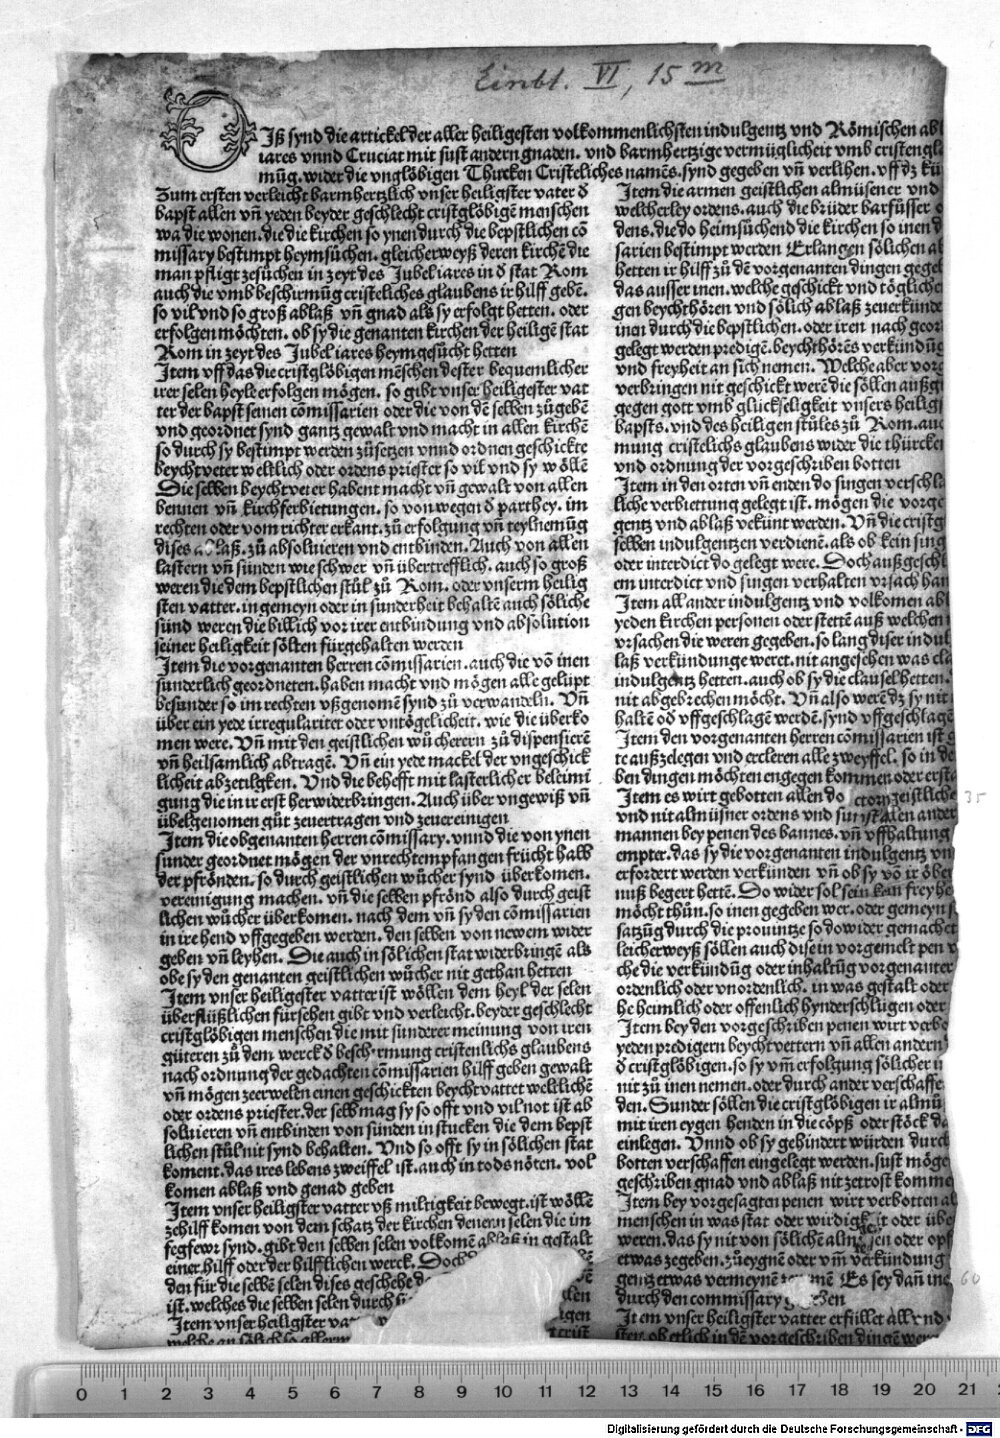 Einbl. VI, 15 m
Diß synd die artickel der aller heiligesten volkommenlichsten indulgentz vnd Römischen abl
iares vnnd Cruciat mit sust andern gnaden. vnd barmhertzige vermüglicheit vmb cristengla
mūg. wider die vnglöbigen Thircken Cristeliches namēs. synd gegeben vn̄ verlihen. vff dz kü
Zum ersten verleicht barmhertzlich vnser heiligster vater d̄
bapst allen vn̄ yeden beyder geschlecht cristglöbigē menschen
wa die wonen. die die kirchen so ynen durch die bepstlichen cō
missary bestimpt heymsůchen. gleicherweyß deren kirchē die
man pfligt zesůchen in zeyt des Jubeliares in d̄ stat Rom
auch die vmb beschirmūg cristeliches glaubens ir hilff gebē.
so vil vnd so groß ablaß vn̄ gnad als sy erfolgt hetten. oder
erfolgen möchten. ob sy die genanten kirchen der heiligē stat
Rom in zeyt des Jubeliares heymgesůcht hetten
Item vff das die cristglöbigen mēschen dester bequemlicher
irer selen heyl erfolgen mögen. so gibt vnser heiligester vat
ter der bapst seinen cōmissarien oder die von dē selben zůgebē
vnd geordnet synd gantz gewalt vnd macht in allen kirchē
so durch sy bestimpt werden zůsetzen vnnd ordnen geschickte
beychtveter weltlich oder ordens priester so vil vnd sy wöllē
Die selben beychtveter habent macht vn̄ gewalt von allen
bennen vn̄ kirchferbietungen. so von wegen d̄ parthey. im
rechten oder vom richter erkant. zů erfolgung vn̄ teylnemūg
dises a laß. zů absoluieren vnd entbinden. Auch von allen
lastern vn̄ sünden wie schwer vn̄ übertrefflich. auch so groß
weren die dem bepstlichen stůl zů Rom. oder vnserm heilig
sten vatter. in gemeyn oder in sunderheit behaltē auch söliche
sünd weren die billich vor irer entbindung vnd absolution
seiner heiligkeit sölten fürgehalten werden
Item die vorgenanten herren cōmissarien. auch die vō inen
sunderlich geordneten. haben macht vnd mögen alle gelüpt
besunder so im rechten vßgenomē synd zů verwandeln. Vn̄
über ein yede irregularitet oder vntögelicheit. wie die überko
men were. Vn̄ mit den geistlichen wůcherern zů dispensierē
vn̄ heilsamlich abtragē. Vn̄ ein yede mackel der vngeschick
licheit abzetilgken. Vnd die behefft mit lasterlicher beleimi
gung die in ir erst herwiderbringen. Auch über vngewiß vn̄
übelgenomen gůt zeuertragen vnd zeuereinigen
Item die obgenanten herren cōmissary. vnnd die von ynen
sunder geordnet mögen der vnrecht empfangen frücht halb
der pfrönden. so durch geistlichen wůcher synd überkomen.
vereinigung machen. vn̄ die selben pfrönd also durch geist
lichen wůcher überkomen. nach dem vn̄ sy den cōmissarien
in ire hend vffgegeben werden. den selben von newem wider
geben vn̄ leyhen. Die auch in sölichen stat widerbringē als
obe sy den genanten geistlichen wůcher nit gethan hetten
Item vnser heiligester vatter ist wöllen dem heyl der selen
überflüßlichen fürsehen gibt vnd verleicht. beyder geschlecht
cristglöbigen menschen die mit sunderer meinung von iren
güteren zů dem werck d̄ besch rmung cristenlichs glaubens
nach ordnung der gedachten cōmissarien hilff geben gewalt
vn̄ mögen zeerwelen einen geschickten beychtvatter weltlichē
oder ordens priester. der selb mag sy so offt vnd vil not ist ab
soluieren vn̄ entbinden von sünden in stucken die dem bepst
lichen stůl nit synd behalten. Vnd so offt sy in sölichen stat
koment. das ires lebens zweiffel ist. auch in tods nöten. vol
komen ablaß vnd genad geben
Item vnser heiligster vatter vß miltigkeit bewegt. ist wöllē
zehilff komen von dem schatz der kirchen denern selen die im
fegfewr synd. gibt den selben selen volkomē ablaß in gestalt
einer hilff oder der hilfflichen werck. Doch
den für die selbē selen dises geschehe d
ist. welches die selben selen durch
Item vnser heiligster va
welche an sölich so allerm
Item die armen geistlichen almüsener vnd
welcherley ordens. auch die brüder barfüsser o
dens. die do heimsüchend die kirchen so inen d
sarien bestimpt werden Erlangen sölichen ab
hetten ir hilff zů dē vorgenanten dingen gegeb
das ausser inen. welche geschickt vnd töglichē
gen beychthören vnd sölich ablaß zeuerkünde
inen durch die bepstlichen. oder iren nach geor
gelegt werden predigē. beychthörēs verkündūg
vnd freyheit an sich nemen. Welche aber vorg
verbringen nit geschickt werē die söllen außgi
gegen gott vmb glückseligkeit vnsers heiligi
bapsts. vnd des heiligen stůles zů Rom. auc
mung cristelichs glaubens wider die thürcken
vnd ordnung der vorgeschriben botten
Item in den orten vn̄ enden do singen verschla
liche verbietung gelegt ist. mögen die vorge
gentz vnd ablaß vekünt werden. Vn̄ die cristg
selben indulgentzen verdienē. als ob kein sing
oder interdict do gelegt were. Doch außgeschl
em interdict vnd singen verhalten vrsach han
Item all ander indulgentz vnd volkomen abl
yeden kirchen personen oder stettē auß welchen
vrsachen die weren gegeben. so lang diser indul
laß verkündunge weret. nit angesehen was cla
indulgentz hetten. auch ob sy die clausel hetten.
nit abgebrechen möcht. Vn̄ also werē dz sy nit
haltē od̄ vffgeschlagē werdē. synd vffgeschlagē
Item den vorgenanten herren cōmissarien ist g
te außzelegen vnd ercleren alle zweyffel. so in de
ben dingen möchten engegen kommen oder ersta
Item es wirt gebotten allen do ctorn geistliche
vnd nit almüsner ordens vnd sunst allen ander
mannen bey penen des bannes. vn̄ vffhaltung
empter. das sy die vorgenanten indulgentz vn
erfordert werden verkünden vn̄ ob sy vō ir öber
nuß begert hettē. Do wider sol sein kan freyhe
möcht thůn. so inen gegeben wer. oder gemeyn s
satzūg durch die prouintze so dowider gemachet
leicherweyß söllen auch dise in vorgemelt pen v
che die verkündūg oder inhaltūg vorgenanter
ordenlich oder vnordenlich. in was gestalt oder
he heimlich oder offenlich hynderschlügen oder
Item bey den vorgeschriben penen wirt verbo
yeden predigern beychtvettern vn̄ allen andern
d̄ cristglöbigen. so sy vm̄ erfolgung sölicher
nit zů inen nemen. oder durch ander verschaffe
den. Sunder söllen die cristglöbigen ir almů
mit iren eygen henden in die cöpß oder stöck da
einlegen. Vnnd ob sy gehindert würden durch
botten verschaffen eingelegt werden. sust möge
geschriben gnad vnd ablaß nit zetrost komme
Item bey vorgesagten penen wirt verbotten al
menschen in was stat oder wirdigkeit oder übe
weren. das sy nit von sölichē almüsen oder opf
etwas zegeben. zůeygnē oder vm̄ verkündung
gentz etwas vermeynē Es sey dan̄ ine
durch den commissary
Item vnser heiligster vatter erfüllet all vnd
sten. ob etlich in dē vorgeschriben dingē were
35
60
0 1 2 3 4 5 6 7 8 9 10 11 12 13 14 15 16 17 18 19 20 21
Digitalisierung gefördert durch die Deutsche Forschungsgemeinschaft - DFG